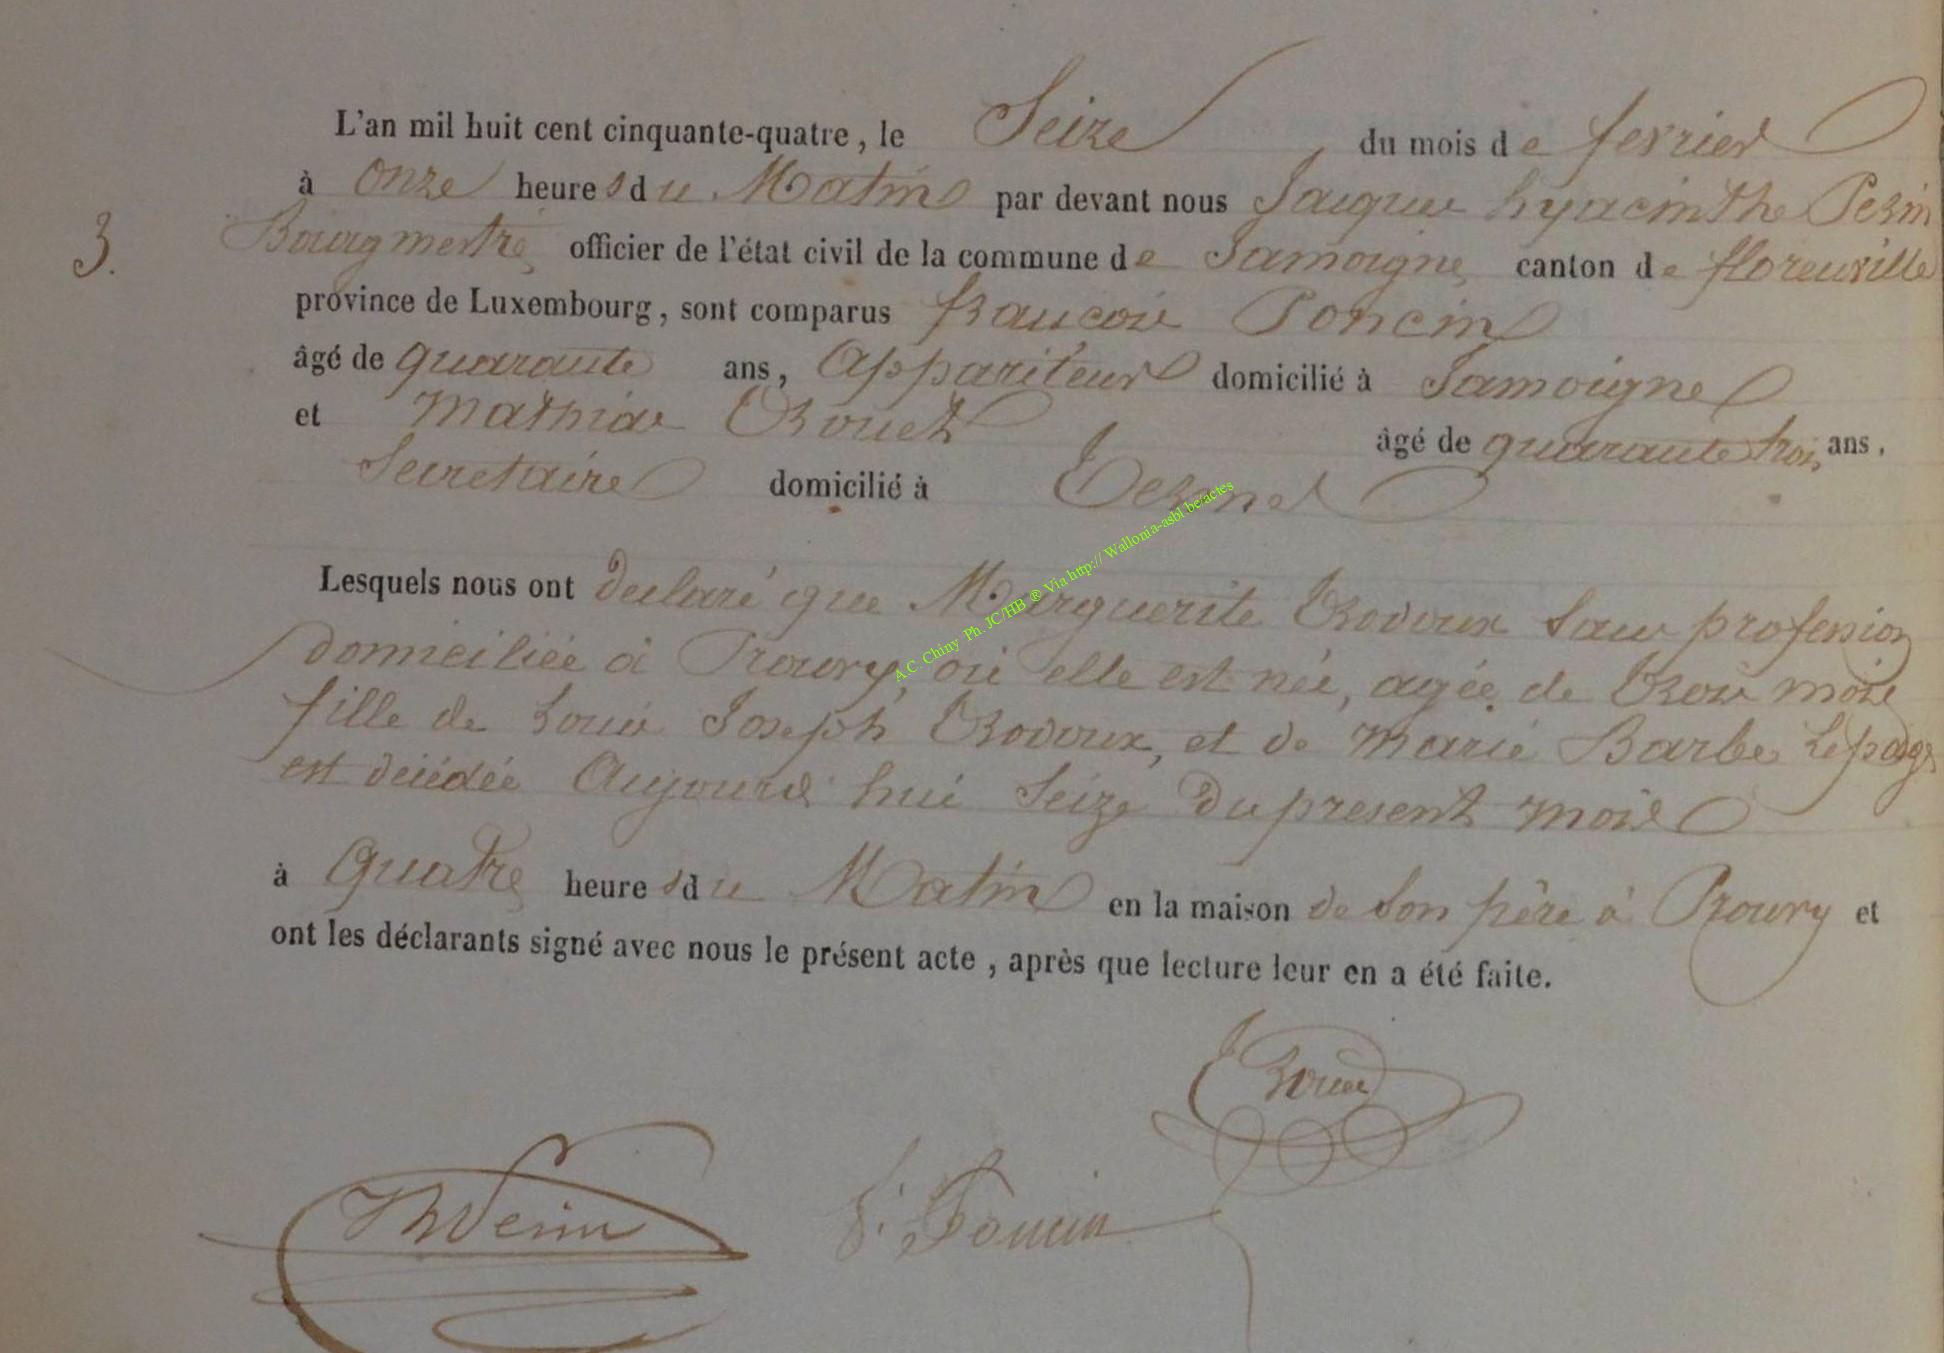 L'an mil huit cent cinquante-quatre, le Seize du mois de fevrier
à onze heures du Matin par devant nous Jacques hyacinthe Perin
3. Bourgmestre officier de l'état civil de la commune de Jamoigne canton de florenville
province de Luxembourg, sont comparus francois Poncin
âgé de quarante ans, Appariteur domicilié à Jamoigne
et Mathias Trouet âgé de quarante trois ans.
Secretaire domicilié à Termes
Lesquels nous ont declaré que Marguerite Rodoux Sans profession
domiciliée à Prouvy, où elle est née, agée de Trois mois
fille de Louis Joseph Rodoux, et de Marie Barbe Lepage
est décédée Aujourd'hui Seize Du present mois
à Quatre heures du Matin en la maison de Son père à Prouvy et
ont les déclarants signé avec nous le présent acte, après que lecture leur en a été faite.
Trouet
JhPerin F. Poncin
A.C. Chiny Ph. JC/HB ® Via http:// Wallonia-asbl be/actes